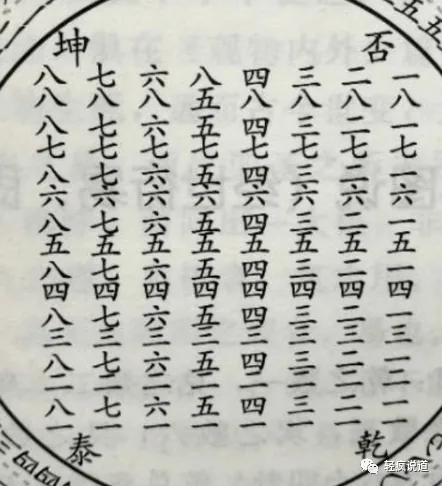 否
坤
一八一七一六一五一四一三一二一一
二八二七二六二五二四二三二二二一
三八三七三六三五三四三三三二三一
四八四七四六四五四四四三四二四一
八五五七五六五五五四五三五二五一
六八六七六六六五六四六三六二六一
七八七七七六七五七四七三七二七一
八八八七八六八五八四八三八二八一
乾
泰
轻疯说道